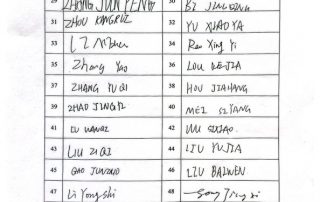 29 ZHONG JUNPENG 30
31 ZHOU KANGRUI 32 YU XIAOYA
33 34 Ren Xing Yi
35 Zhang Yao 36 LOU KEJIA
37 ZHANG YU QI 38 HOU JIAHANG
39 ZHAO JINGYI 40 MEI SIYANG
41 42 WU SIJIAO
43 LIU ZI QI 44 LIU YUJIA
45 GAO JUNTAO 46 LIU BAIWEN
47 Li Yongshi 48